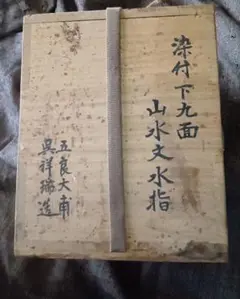 染付下九面
山水文水指
五良大甫
呉祥瑞造